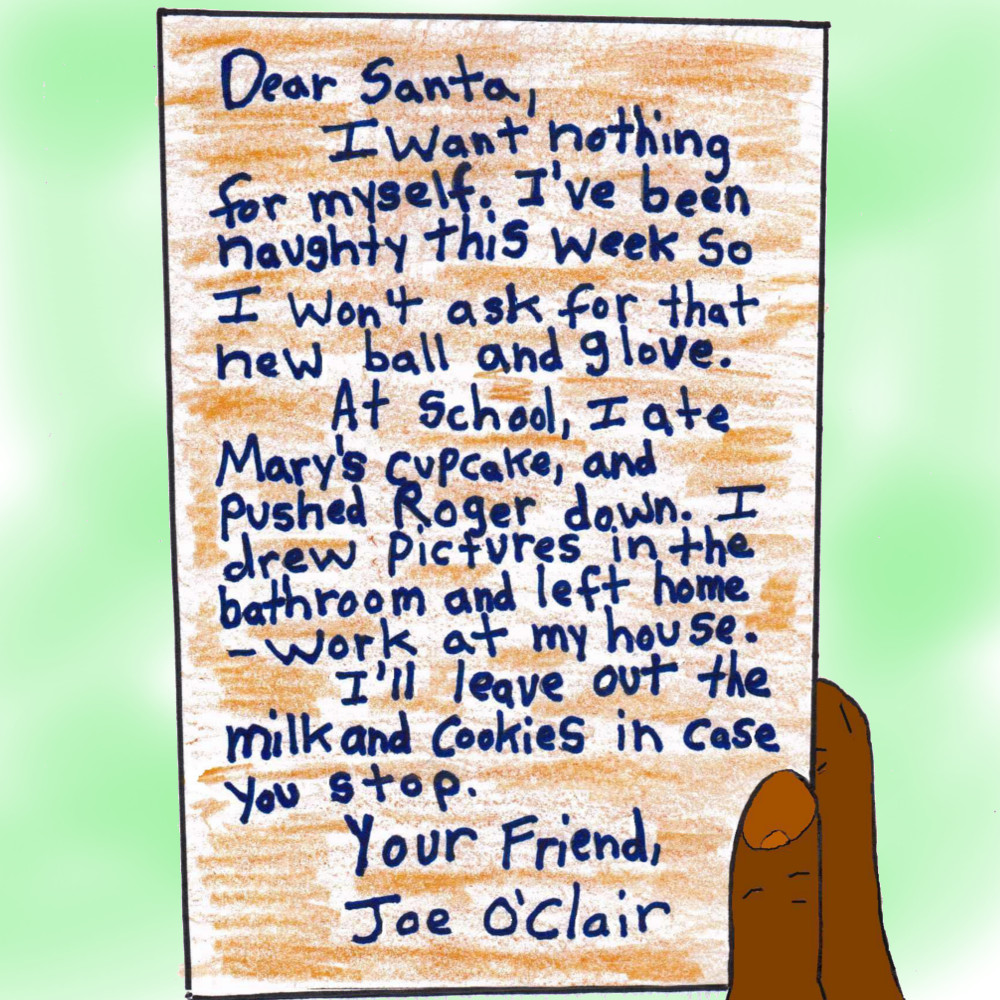 Dear Santa,
I Want nothing
for myself. I've been
naughty this week so
I won't ask for that
new ball and glove.
At School, I ate
Mary's cupcake, and
pushed Roger down. I
drew pictures in the
bathroom and left home
-work at my house.
I'll leave out the
milk and cookies in case
you stop.
Your Friend,
Joe O'Clair